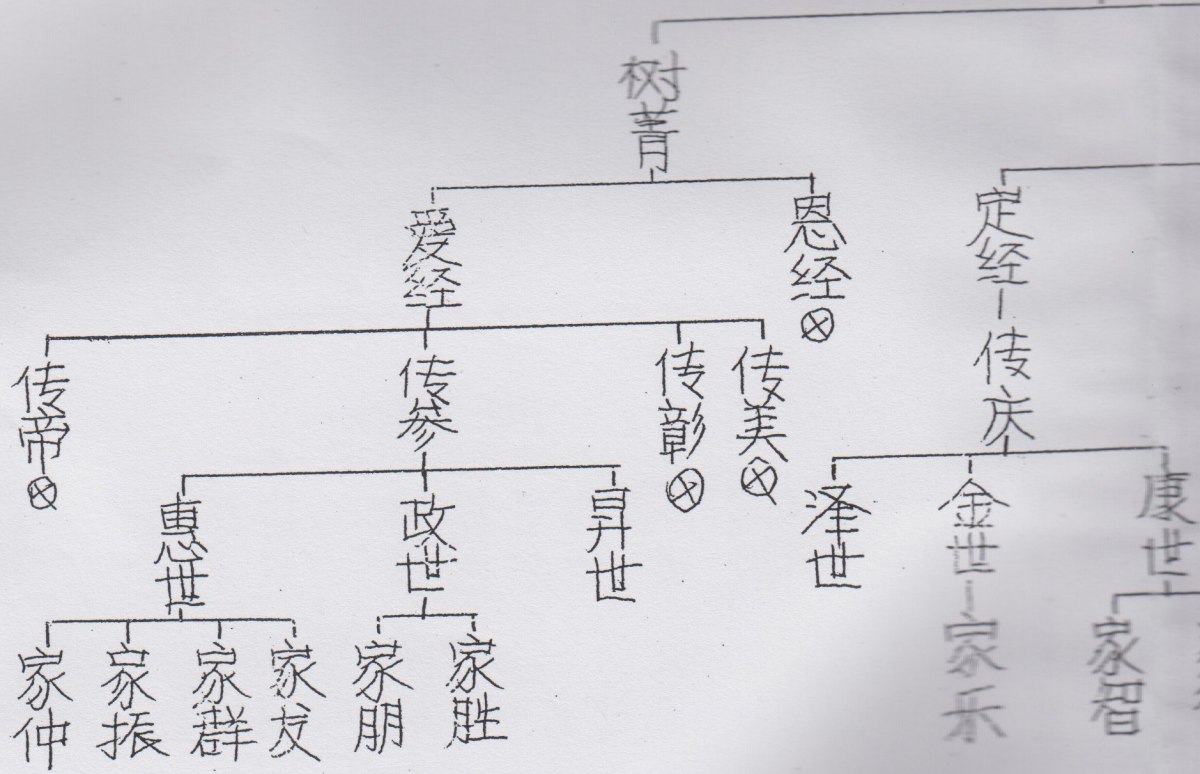 树菁
爱经
恩经
定经
传庆
传帝
传参
传彰
传美
惠世
政世
昇世
泽世
金世
康世
家仲
家振
家群
家友
家朋
家胜
家乐
家智